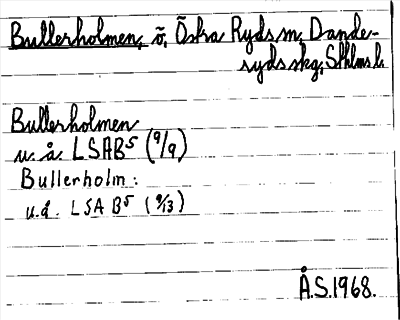 Bullerholmen, ö, Östra Ryds sn, Dande-
ryds skg, Sthlms l.
Bullerholmen
u. å. LSAB⁵ (9/9)
Bullerholm:
u.å. LSA B⁵ (9/13)
Å.S. 1968.